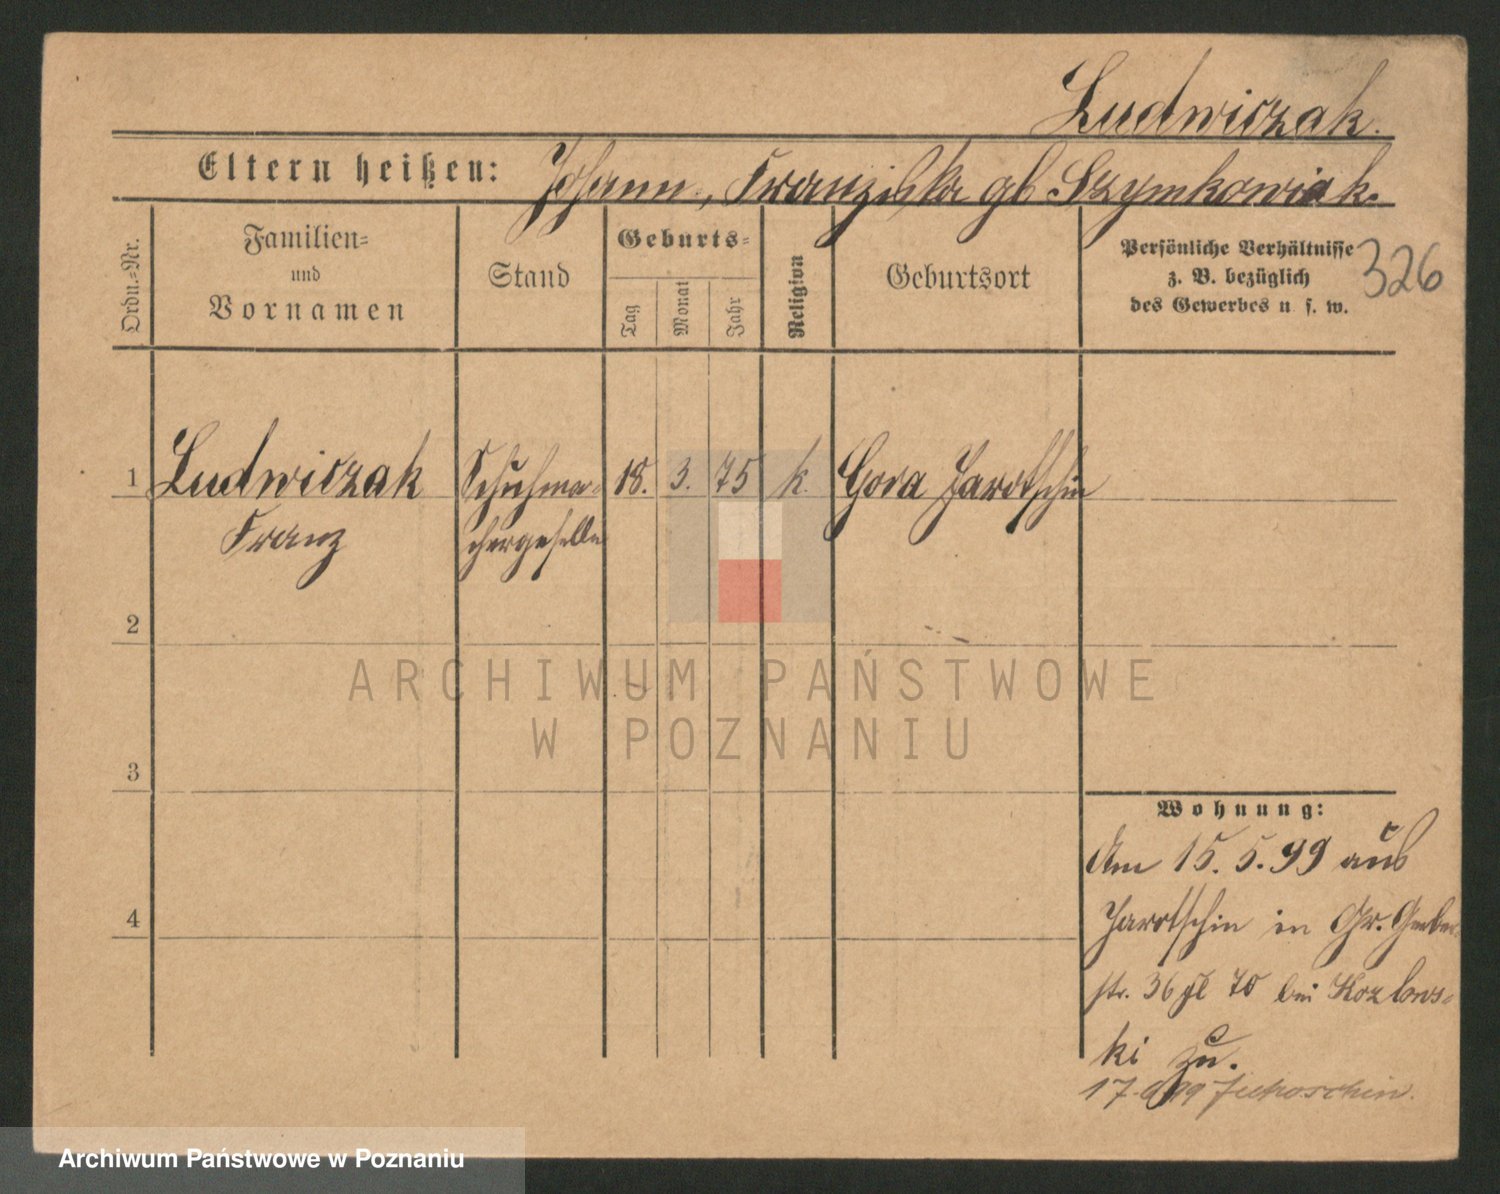 Ludwiczak.
Eltern heißen: Johann, Franziska gb Szymkowiak.
Ordn.=Nr.
Familien=
und
Vornamen
Stand
Geburts=
Tag
Monat
Jahr
Religion
Geburtsort
Persönliche Verhältnisse
z. B. bezüglich
des Gewerbes u. s. w.
326
1 Ludwiczak Schuhma= 18. 3. 75 k. Gora Jarotschin
Franz chergeselle
2
3
4
ARCHIWUM PAŃSTWOWE
W POZNANIU
Wohnung:
Am 15. 5. 99 aus
Jarotschin in Gr. Gerber=
str. 36 bei Kozlows=
ki zu.
17. 99
Archiwum Państwowe w Poznaniu